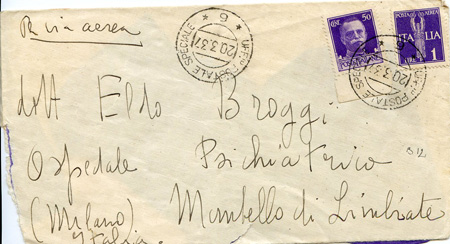 P. via aerea
UFFIO POSTALE SPECIALE
* 6 *
20.3.37
CENT. 50
POSTA AEREA
ITALIA
LIRE 1
UFFIO POSTALE SPECIALE
* 6 *
20.3.37
dott Eldo Broggi
Ospedale Psichiatrico
(Milano) Mombello di Limbiate
Italia